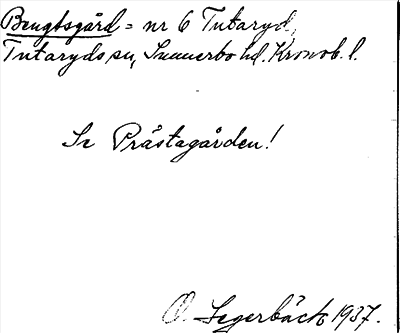 Bengtsgård = nr 6 Tutaryd,
Tutaryds sn, Sunnerbo hd. Kronob. l.
Se Prästagården!
O. Segerbäck 1937.